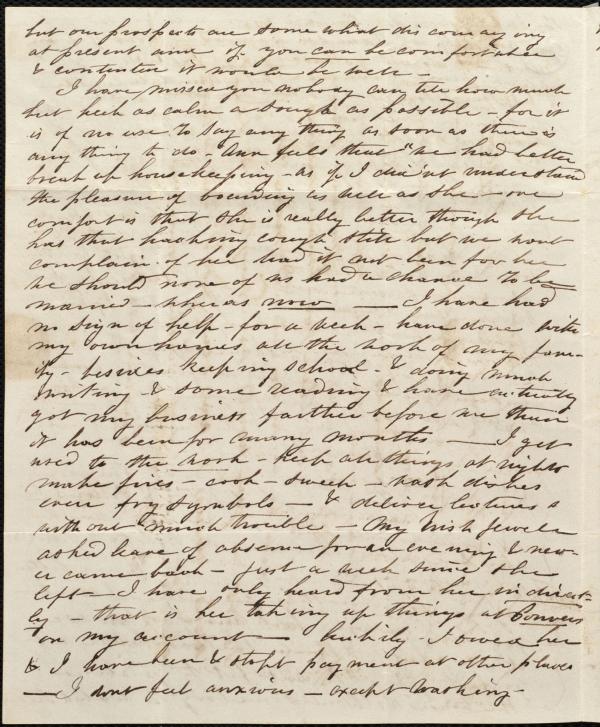 but our prospects are some what discouraging
at present and if you can be comfortable
& contented it would be well –
I have missed you nobody can tell how much
but keep as calm a sough as possible – for it
is of no use to say any thing as soon as there is
any thing to do – Ann feels that "we had better
break up housekeeping – as if I did'nt understand
the pleasure of boarding as well as she – one
comfort is that she is really better though she
has that hacking cough still but we wont
complain of her had it not been for her
we should none of us had a chance to be
married – whereas now — I have had
no sign of help – for a week – have done with
my own hands all the work of my fam-
ily – besides keeping school – & doing much
writing & some reading & have actually
got my business farther before me than
it has been for many months — I get
used to the work – keep all things at rights
make fires – cook – sweep – wash dishes
even fry symbols – & deliver lectures
without much trouble – My Irish Jewel
asked leave of absence for an evening & nev-
er came back – just a week since she
left – I have only heard from her indirect-
ly – that is her taking up things at Convers
on my account – luckily I owed her
& I have been & stopt payment at other places
— I dont feel anxious – except washing –